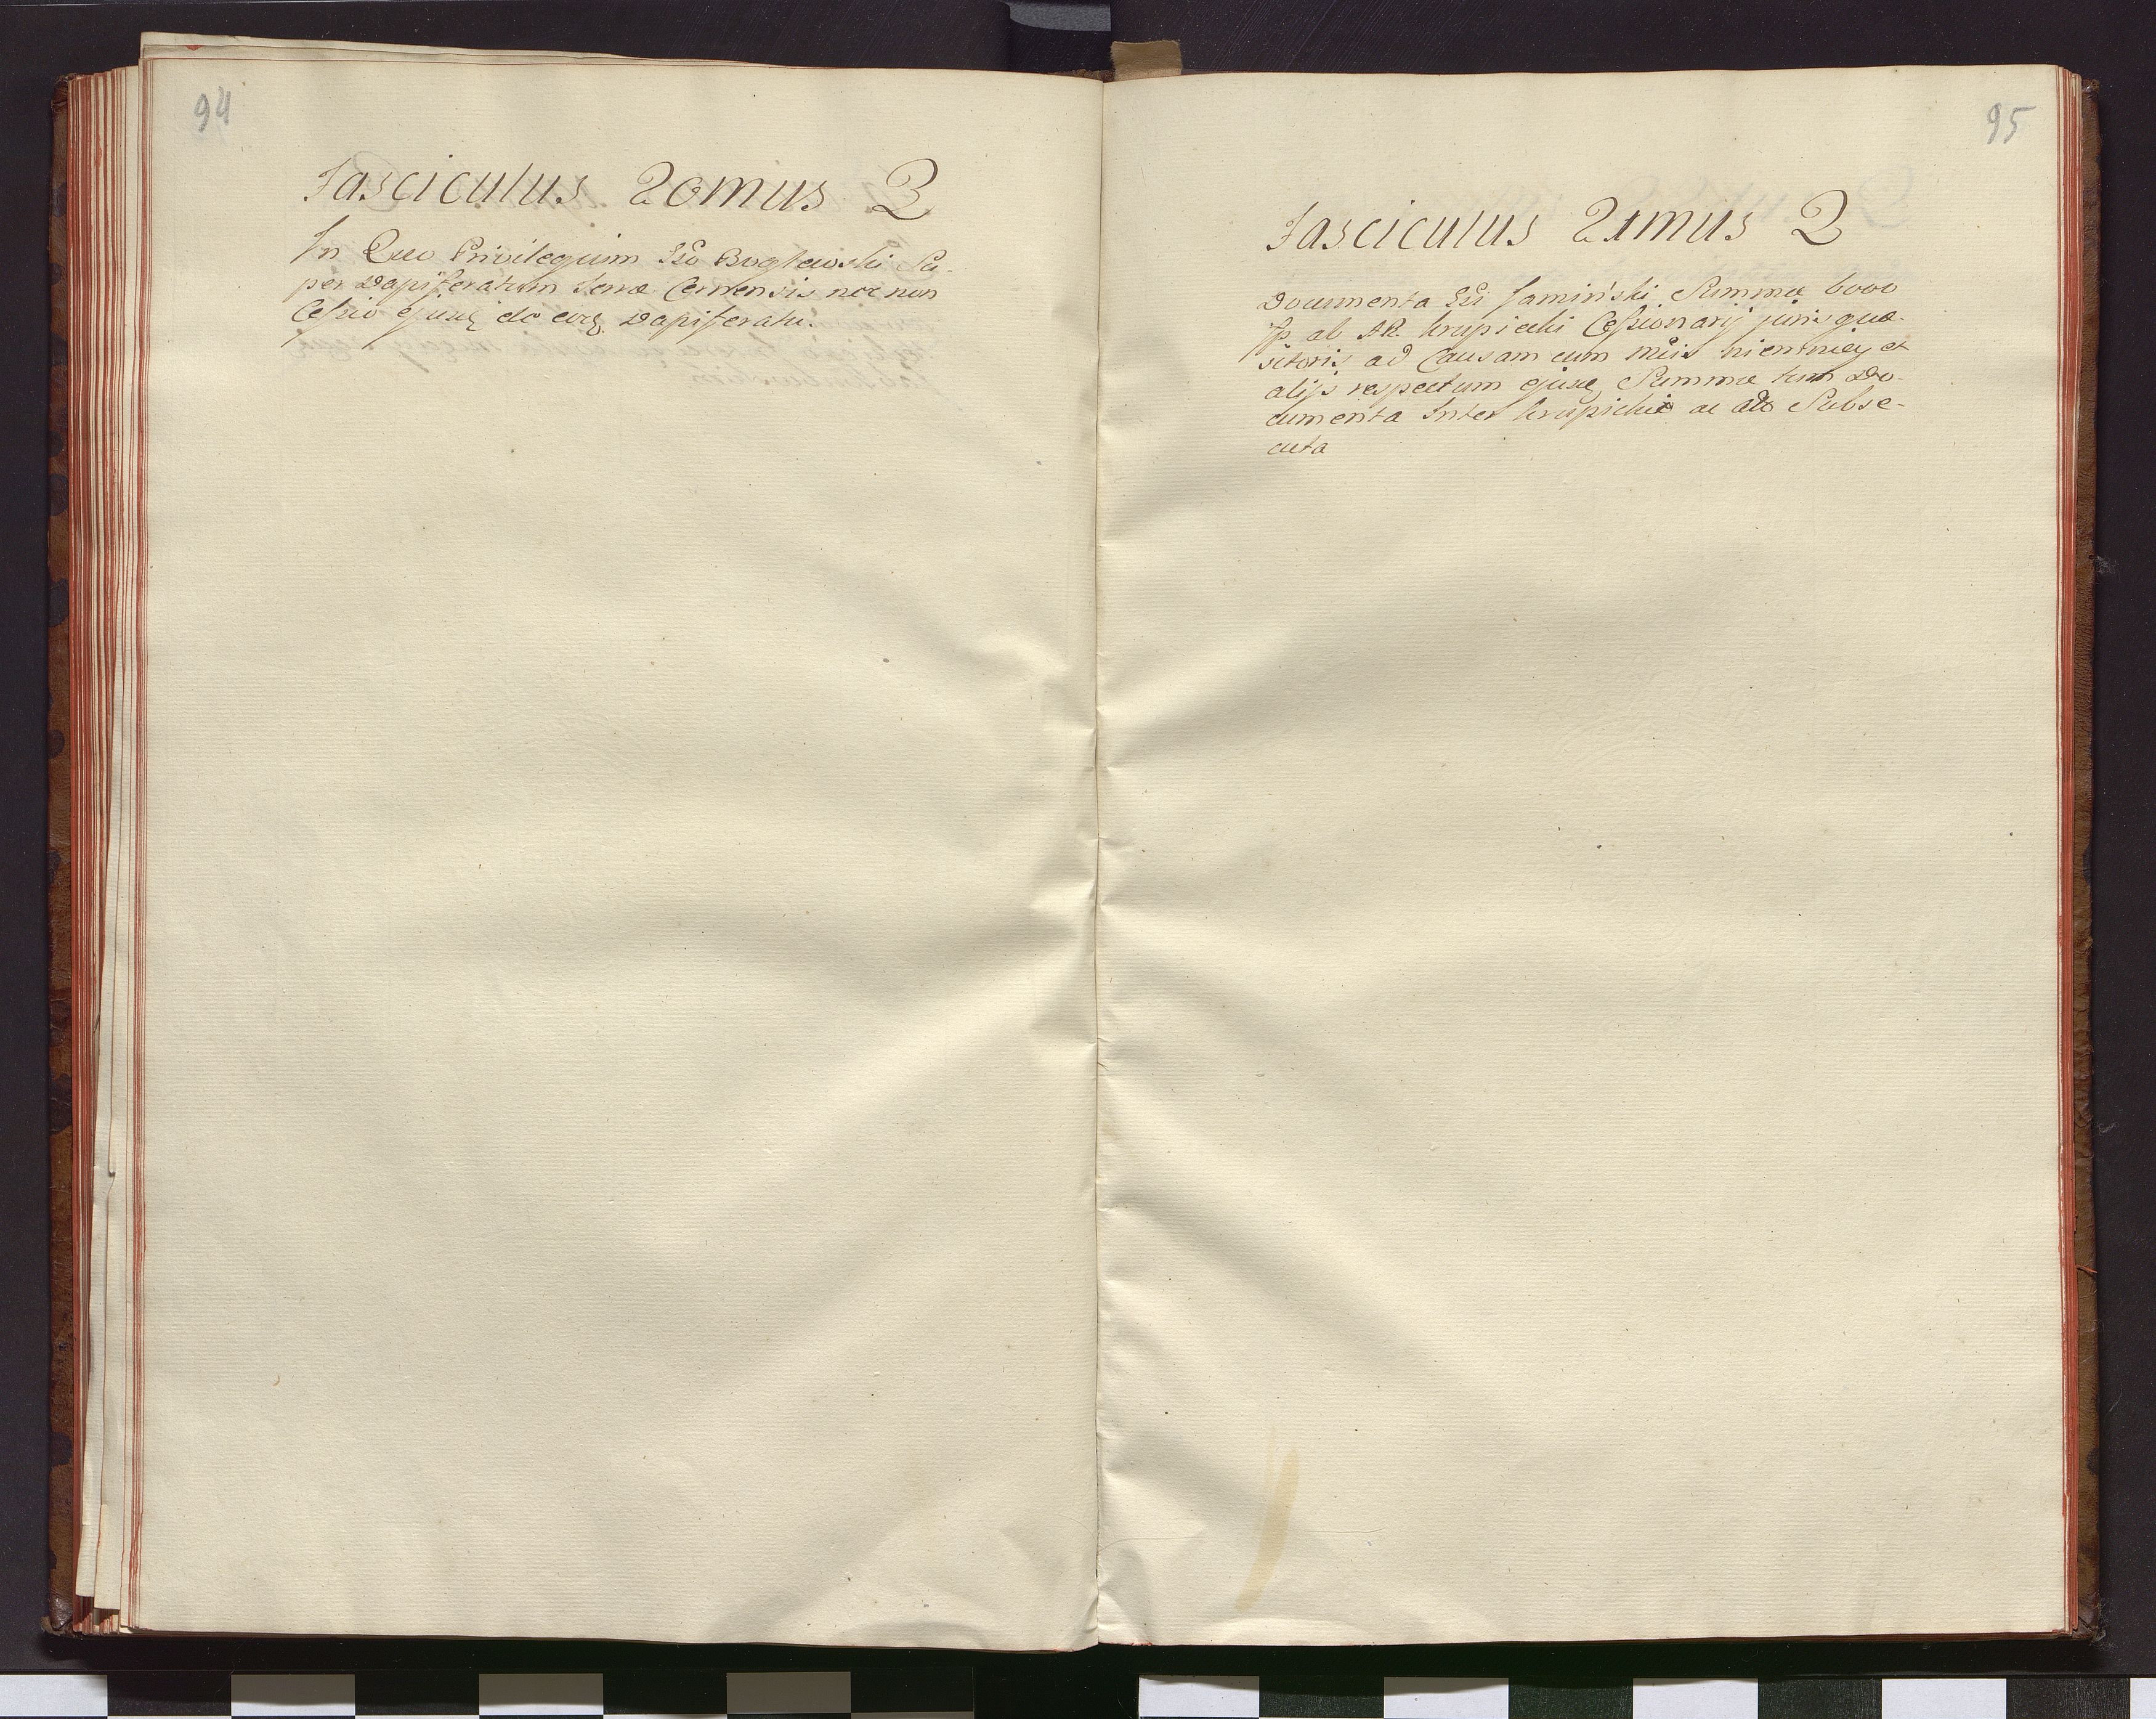 94
Fasciculus 20mus Q
In Quo Privilegium Bogłewski Su-
per Dapiferatum Terræ Cernensis nec non
Cessio ejusq de eodq Dapiferatu.
95
Fasciculus 21mus Q
Documenta Jamiński Summæ 6000
ab Krupicki Cessionarij juris quæ-
sitoris ad Causam cum et
alijs respectum ejusq Summæ tum Do-
cumenta Inter ac Subse-
cuta